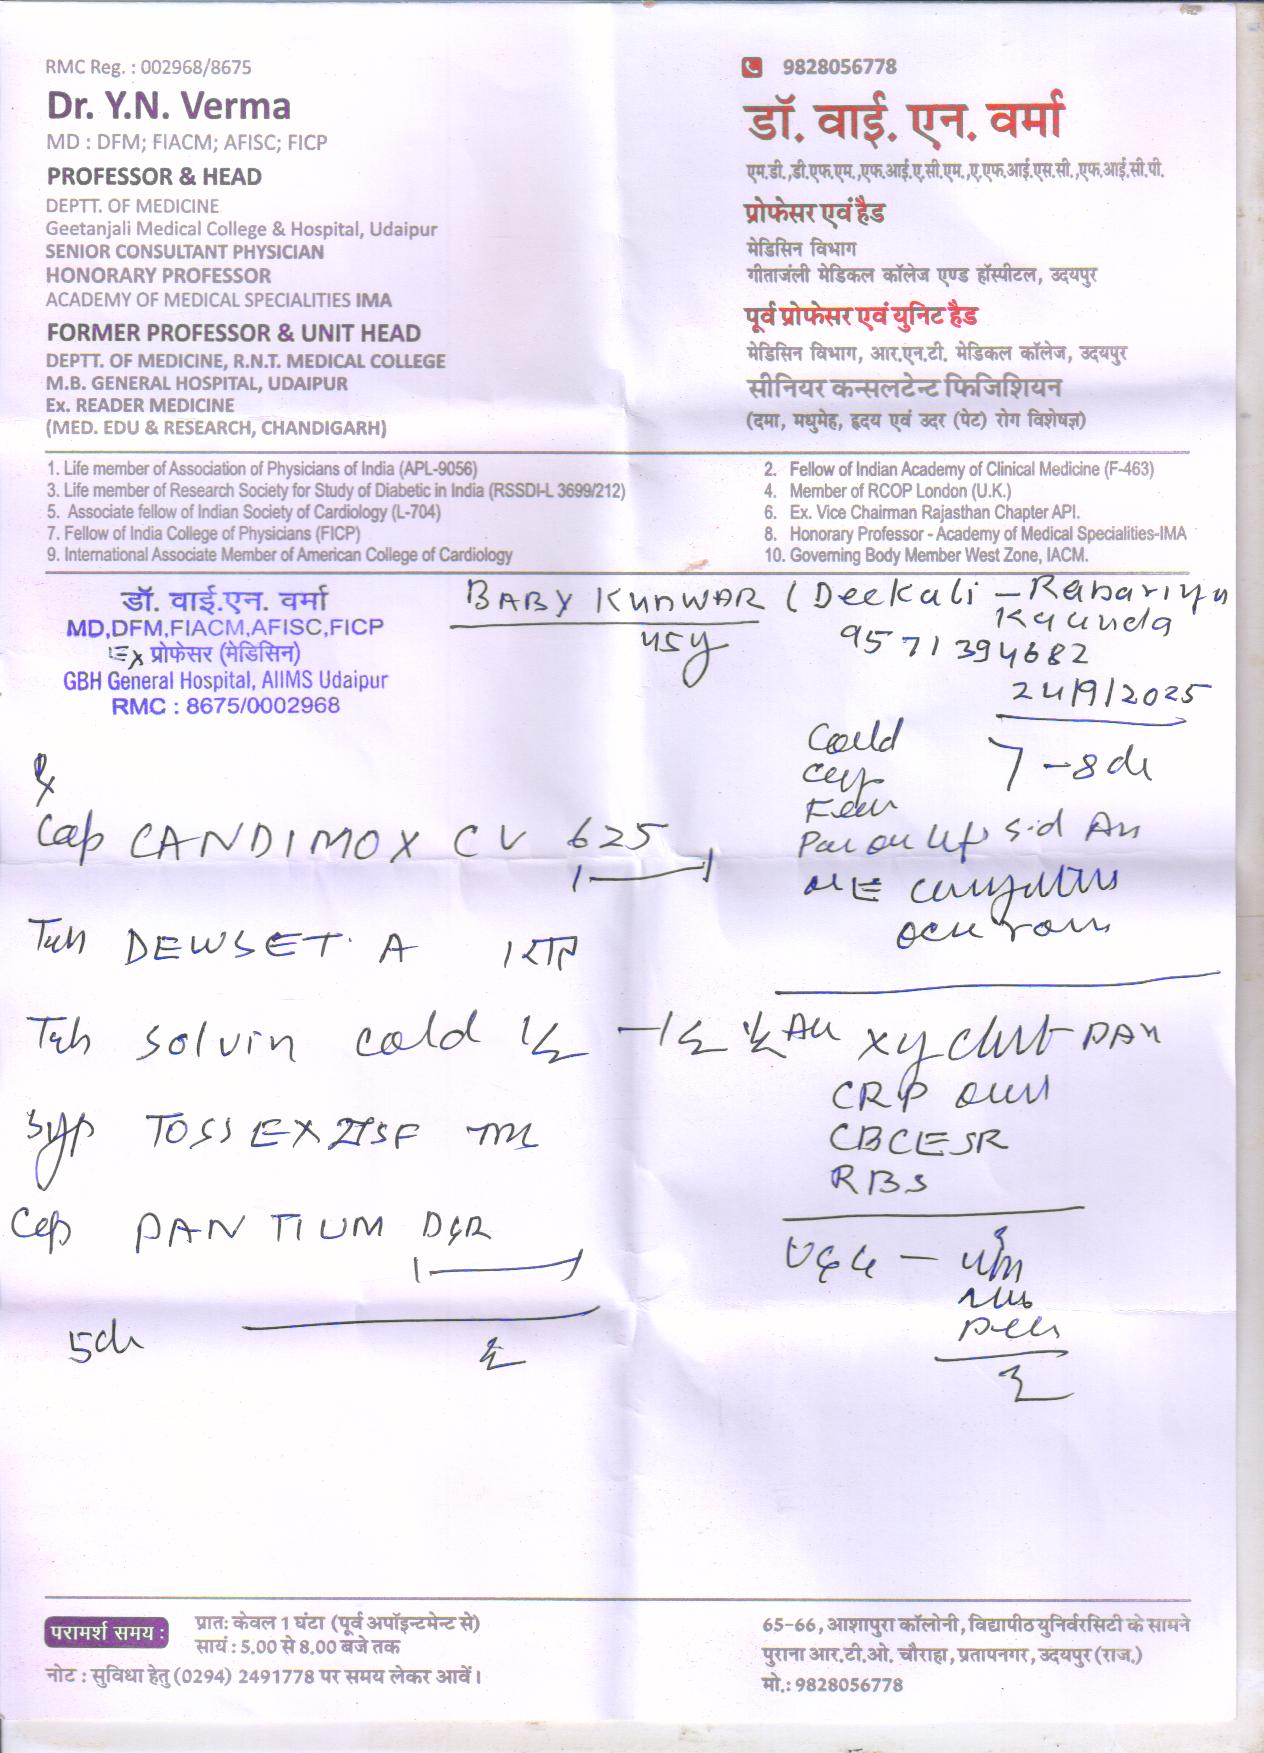 RMC Reg. : 002968/8675
Dr. Y.N. Verma
MD : DFM; FIACM; AFISC; FICP
PROFESSOR & HEAD
DEPTT. OF MEDICINE
Geetanjali Medical College & Hospital, Udaipur
SENIOR CONSULTANT PHYSICIAN
HONORARY PROFESSOR
ACADEMY OF MEDICAL SPECIALITIES IMA
FORMER PROFESSOR & UNIT HEAD
DEPTT. OF MEDICINE, R.N.T. MEDICAL COLLEGE
M.B. GENERAL HOSPITAL, UDAIPUR
Ex. READER MEDICINE
(MED. EDU & RESEARCH, CHANDIGARH)
9828056778
डॉ. वाई. एन. वर्मा
एम.डी.,डी.एफ.एम.,एफ.आई.ए.सी.एम.,ए.एफ.आई.एस.सी.,एफ.आई.सी.पी.
प्रोफेसर एवं हैड
मेडिसिन विभाग
गीताजंली मेडिकल कॉलेज एण्ड हॉस्पीटल, उदयपुर
पूर्व प्रोफेसर एवं युनिट हैड
मेडिसिन विभाग, आर.एन.टी. मेडिकल कॉलेज, उदयपुर
सीनियर कन्सलटेन्ट फिजिशियन
(दमा, मधुमेह, हृदय एवं उदर (पेट) रोग विशेषज्ञ)
1. Life member of Association of Physicians of India (APL-9056)
2. Fellow of Indian Academy of Clinical Medicine (F-463)
3. Life member of Research Society for Study of Diabetic in India (RSSDI-L 3699/212)
4. Member of RCOP London (U.K.)
5. Associate fellow of Indian Society of Cardiology (L-704)
6. Ex. Vice Chairman Rajasthan Chapter API.
7. Fellow of India College of Physicians (FICP)
8. Honorary Professor - Academy of Medical Specialities-IMA
9. International Associate Member of American College of Cardiology
10. Governing Body Member West Zone, IACM.
डॉ. वाई.एन. वर्मा
MD,DFM,FIACM,AFISC,FICP
EX प्रोफेसर (मेडिसिन)
GBH General Hospital, AIIMS Udaipur
RMC : 8675/0002968
BABY KUNWAR (Deekali -
45y
9571394682
24/9/2025
Cold 7-8
℞
Cap CANDIMOX CV 625
Tab A
Tab Solvin Cold
Syp TOSSEX
Cap PANTIUM DSR
X
CRP
CBC ESR
RBS
5
परामर्श समय :
प्रातः केवल 1 घंटा (पूर्व अपॉइन्टमेन्ट से)
सायं : 5.00 से 8.00 बजे तक
नोट : सुविधा हेतु (0294) 2491778 पर समय लेकर आवें।
65-66, आशापुरा कॉलोनी, विद्यापीठ युनिर्वरसिटी के सामने
पुराना आर.टी.ओ. चौराहा, प्रतापनगर, उदयपुर (राज.)
मो.: 9828056778